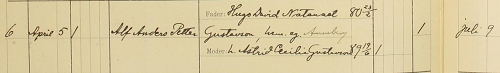 Fader: Hugo David Natanael 80 23/2
6 April 5 1 Alf Anders Petter Gustavson, hem. eg. Anneberg 1 juli 9
Moder: h. Astrid Cecilia Gustavson 89 19/6 1